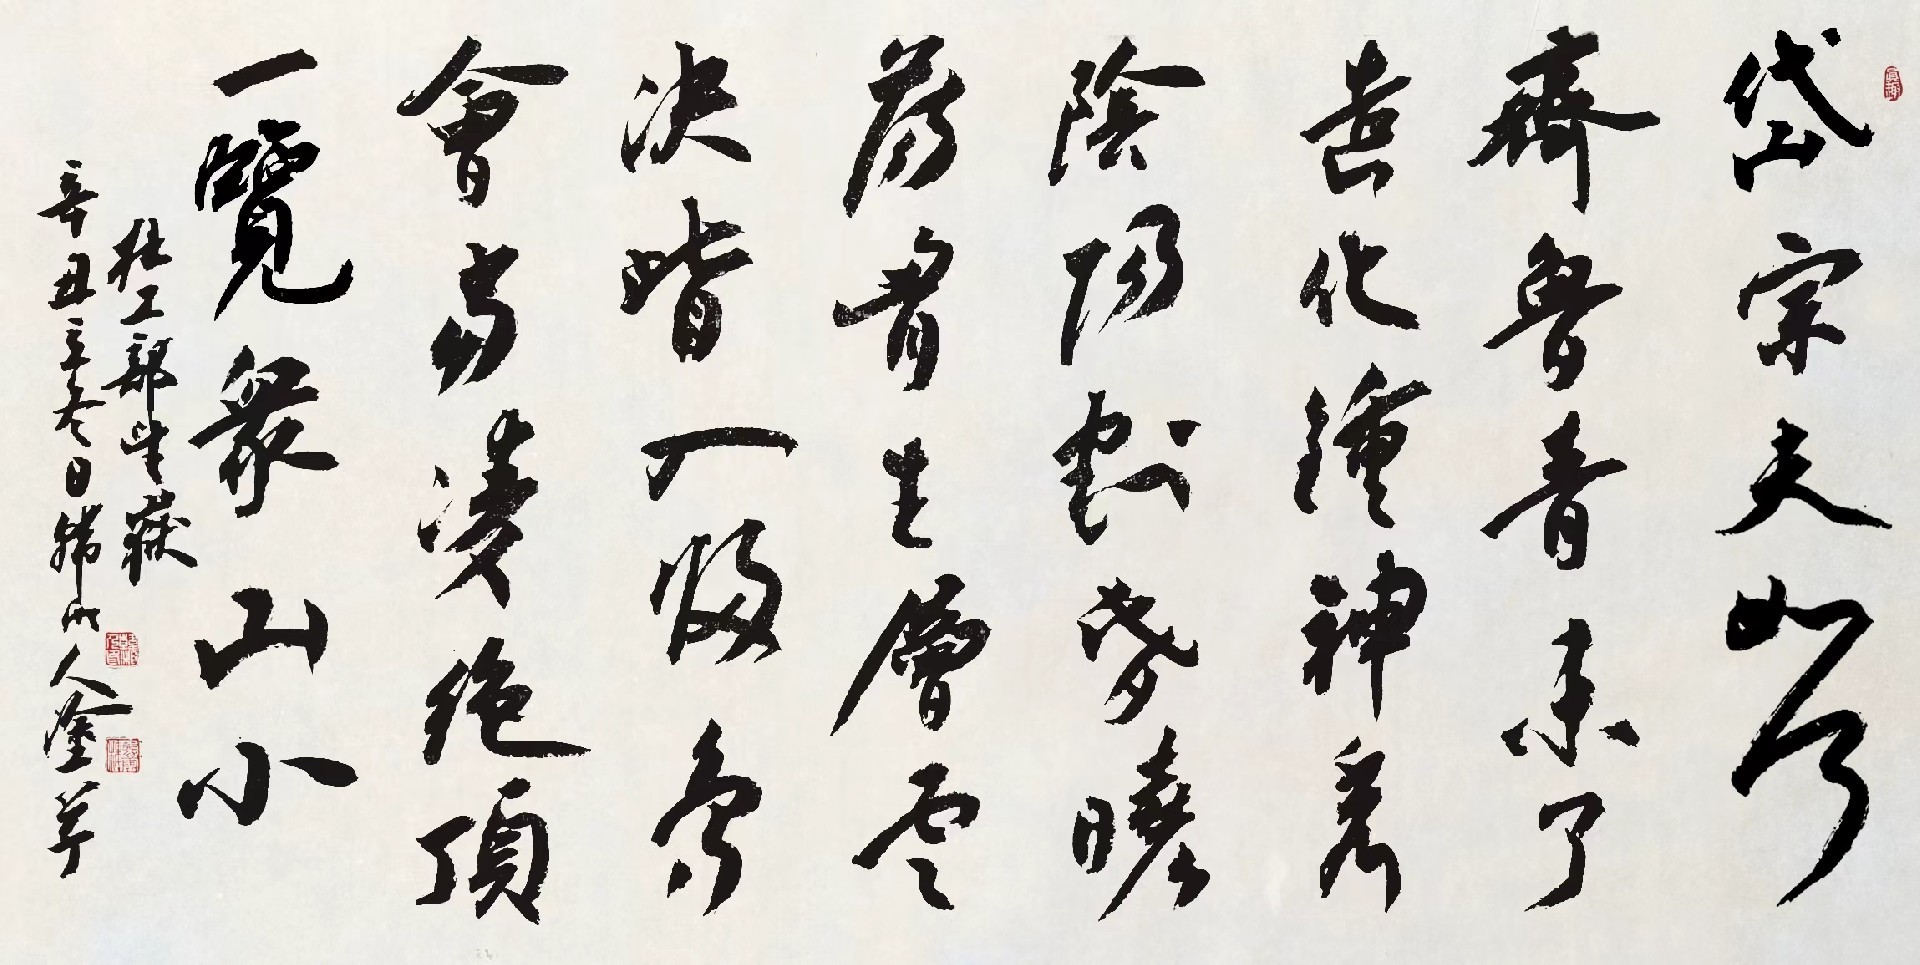 岱宗夫如何
齊魯青未了
造化鍾神秀
陰陽割昏曉
蕩胸生層雲
決眥入歸鳥
會當凌絕頂
一覽眾山小
杜工部望嶽
辛丑立冬日 人塗草